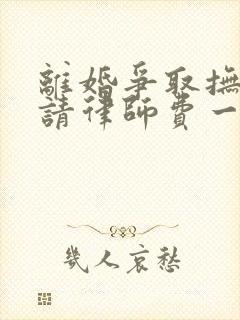 離婚爭取撫
請律師費一
幾人哀愁